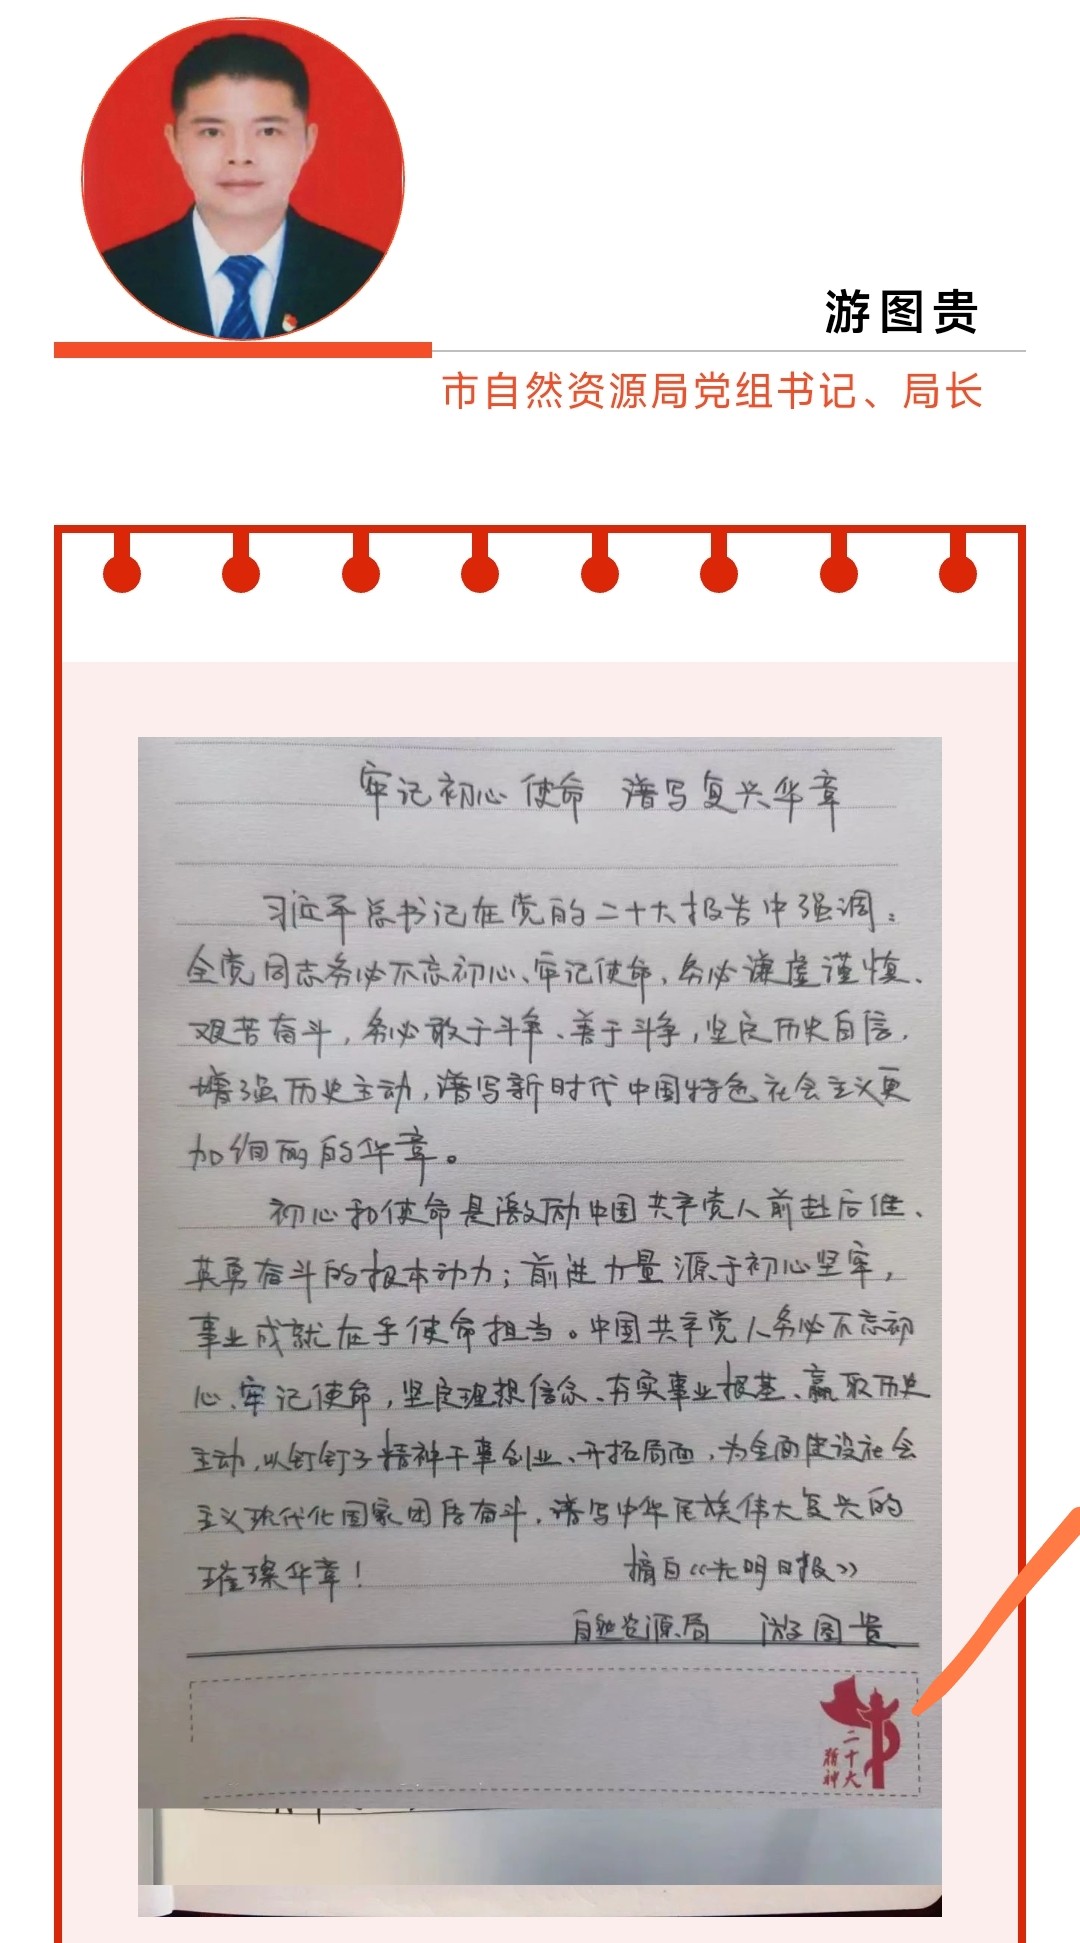 游图贵
市自然资源局党组书记、局长
牢记初心使命 谱写复兴华章
习近平总书记在党的二十大报告中强调：
全党同志务必不忘初心、牢记使命，务必谦虚谨慎、
艰苦奋斗，务必敢于斗争、善于斗争，坚定历史自信，
增强历史主动，谱写新时代中国特色社会主义更
加绚丽的华章。
初心和使命是激励中国共产党人前赴后继、
英勇奋斗的根本动力；前进力量源于初心坚牢，
事业成就在乎使命担当。中国共产党人务必不忘初
心、牢记使命，坚定理想信念、夯实事业根基、赢取历史
主动，以钉钉子精神干事创业、开拓局面，为全面建设社会
主义现代化国家团结奋斗，谱写中华民族伟大复兴的
璀璨华章！ 摘自《光明日报》
自然资源局 游图贵
二十大
精神